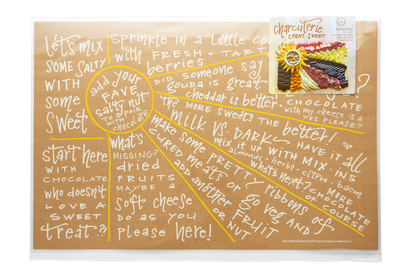 charcuterie
CHEAT SHEET
let's mix
SOME SALTY
WITH
some
sweet
sprinkle in a little co
WITH FRESH + TART
berries
DID someone say
gouda is great
cheddar is better.
CHOCOLATE
with my cheese is a
YES PLEASE!!
THE MORE SWEETS THE better!
add your
FAVE
salty nut
TO dip
in
chocolate
MILK VS. DARK... HAVE it all
mix it up WITH MIX INS
almonds. herbs. citrus. bacon
what's next? MORE
CHOCOLATE
OF COURSE
make some PRETTY ribbons of
CURED meats or go veg AND
add another FRUIT
OR NUT
start here
WITH
CHOCOLATE
who doesn't
LOVE A
SWEET
treat?!
what's
MISSING?
dried
FRUITS
MAYBE a
soft cheese
DO as YOU
please here!